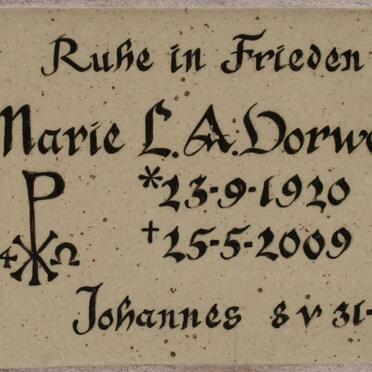 Ruhe in Frieden
Marie L.A. Dorw
*23-9-1920
+25-5-2009
Johannes 8 v 31-